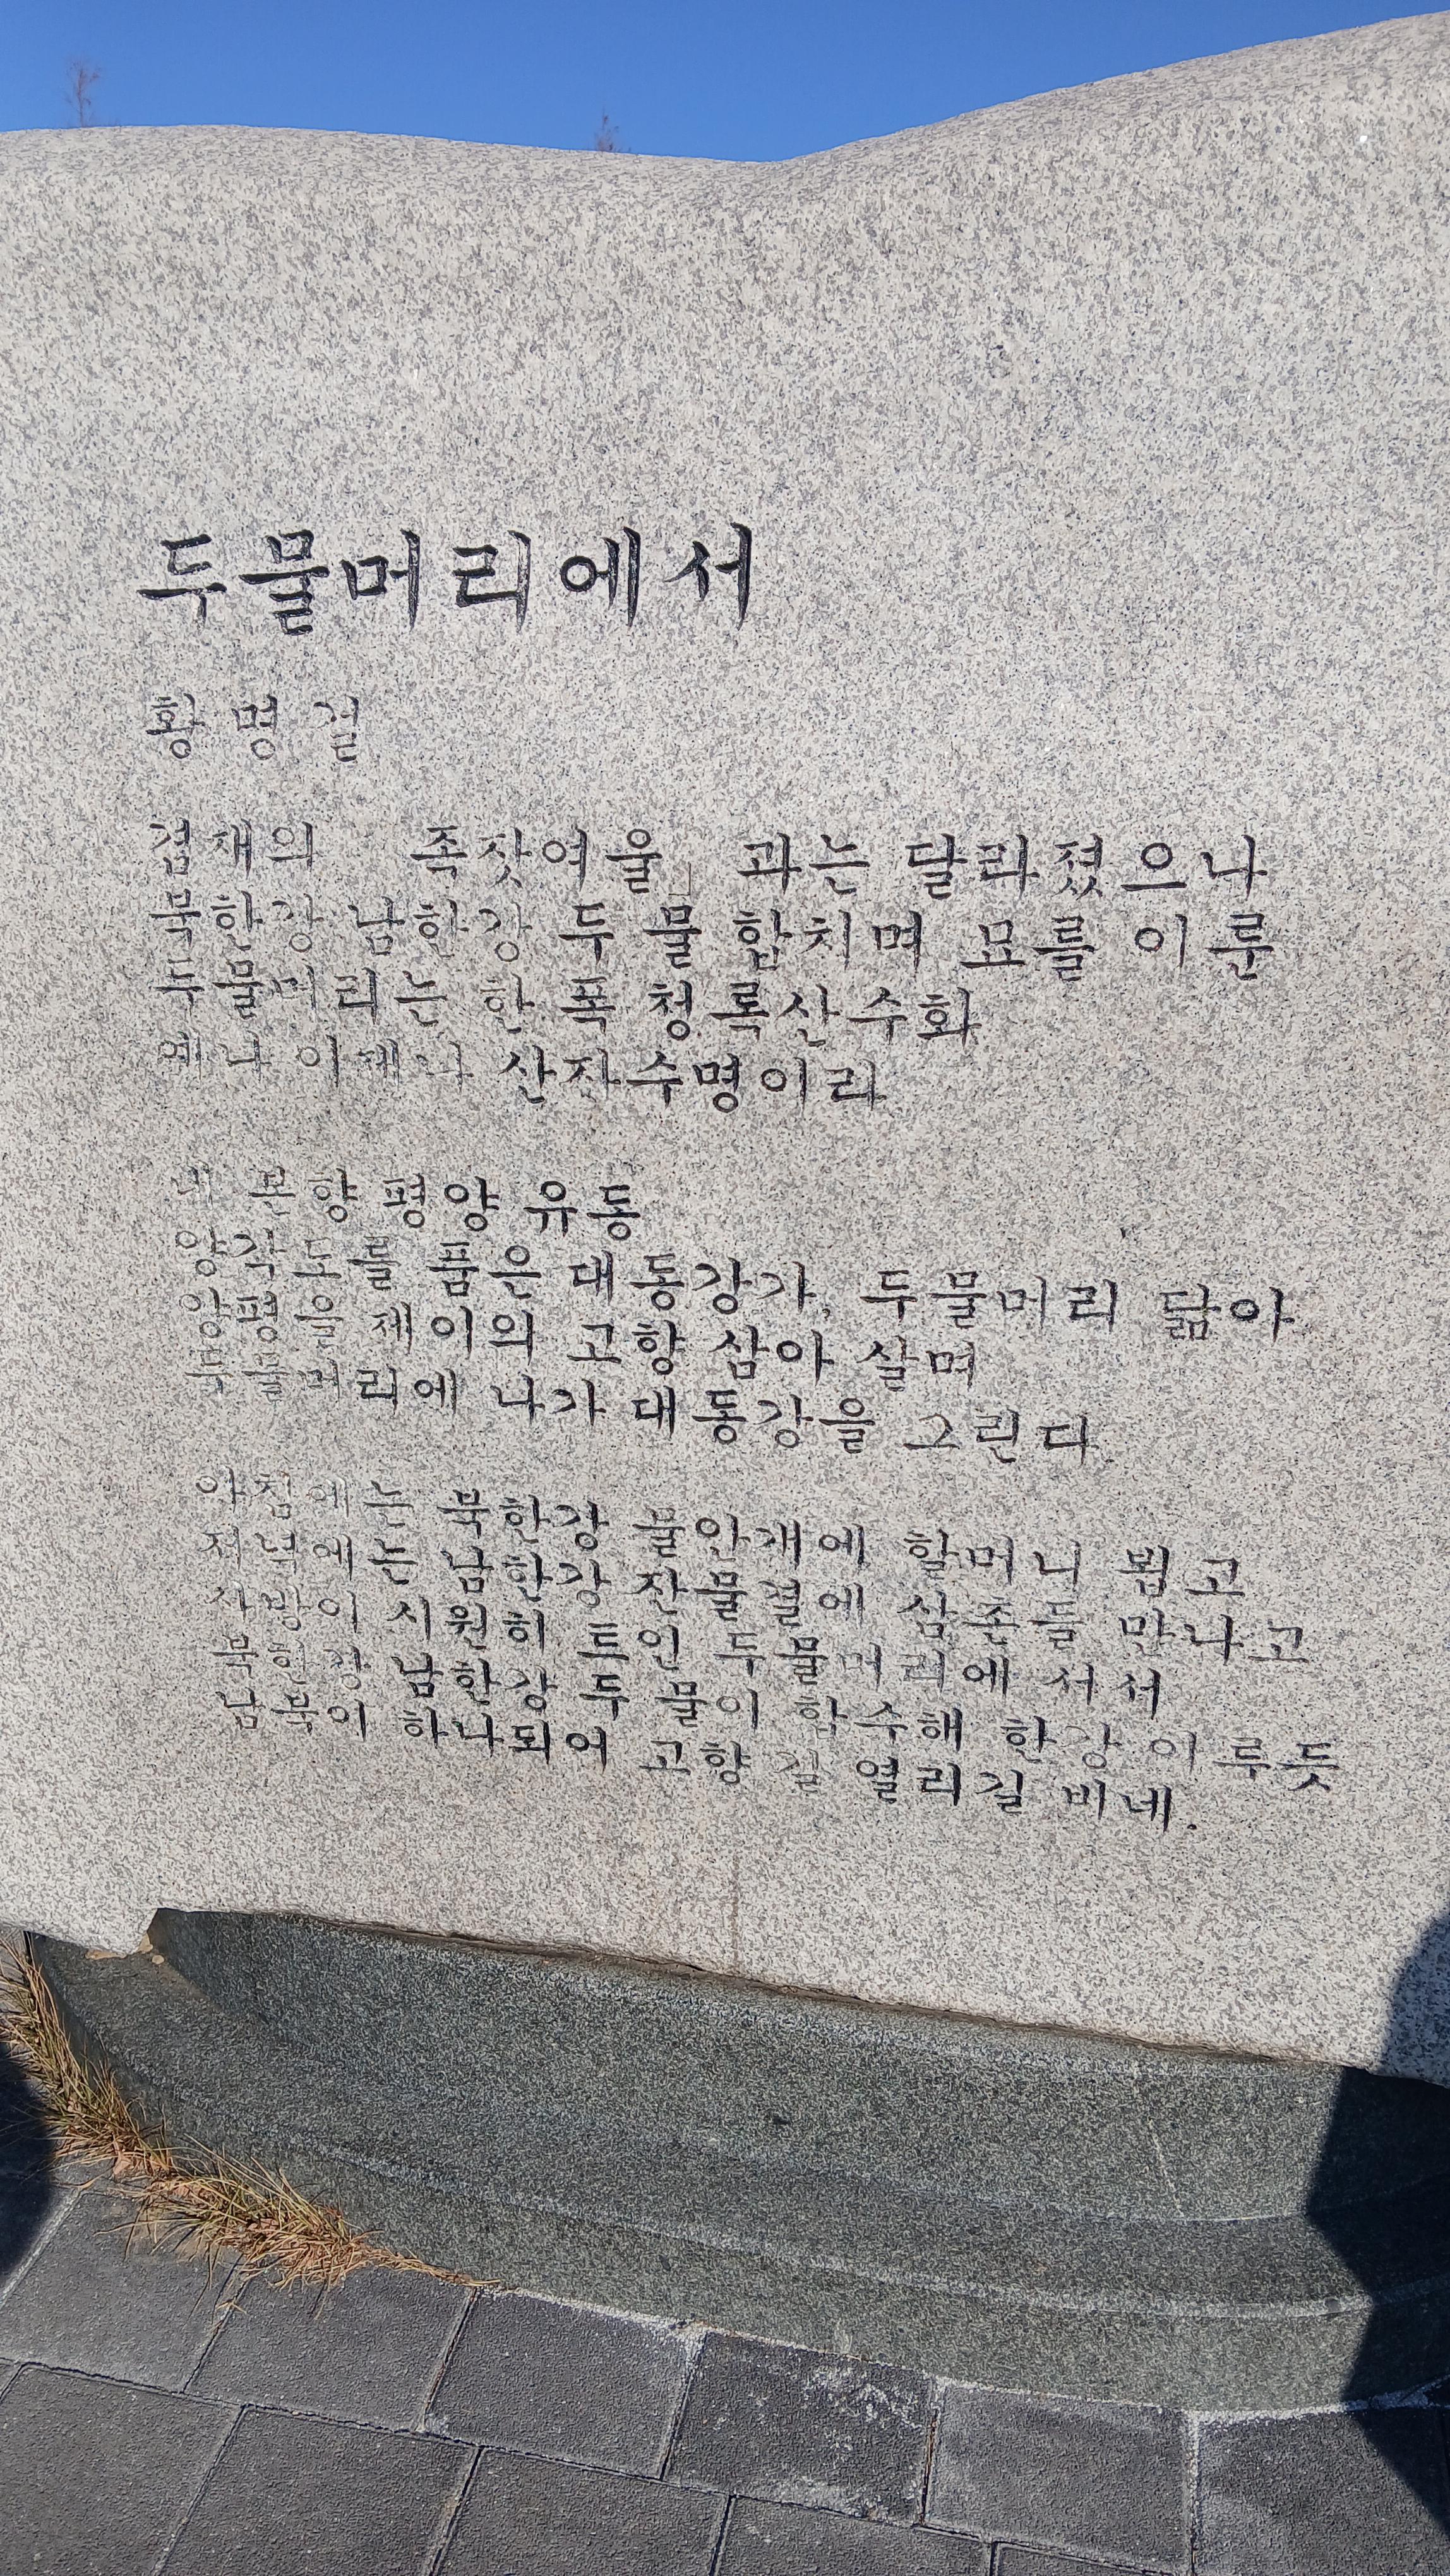 두물머리에서
황명걸
겸재의 족잣여울」 과는 달라졌으나
북한강 남한강 두 물 합치며 묘를 이룬
두물머리는 한 폭 청록산수화
예나 이제나 산자수명이라
내 본향 평양 유동
양각도를 품은 대동강가, 두물머리 닮아
양평을 제이의 고향 삼아 살며
두물머리에 나가 대동강을 그린다
아침에는 북한강 물안개에 할머니 뵙고
저녁에는 남한강 잔물결에 삼촌들 만나고
사방이 시원히 트인 두물머리에 서서
북한강 남한강 두 물이 합수해 한강 이루듯
남북이 하나되어 고향 길 열리길 비네.